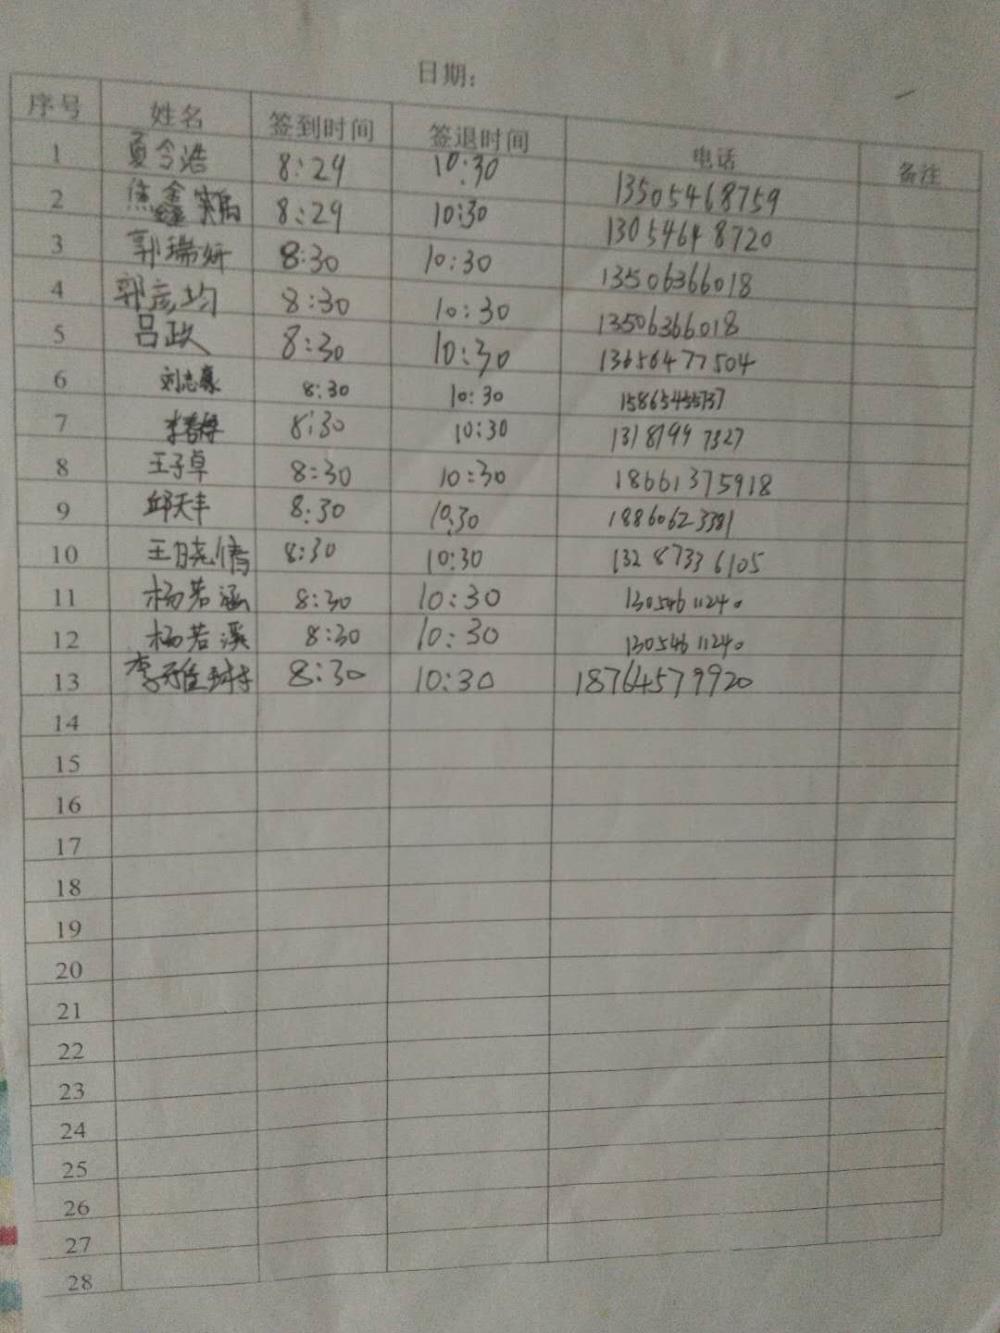 日期:
序号 姓名 签到时间 签退时间 电话 备注
1 夏令浩 8:29 10:30 13505468759
2 焦鑫 8:29 10:30 13054648720
3 郭瑞妍 8:30 10:30 13506366018
4 郭彦均 8:30 10:30 13506366018
5 吕政 8:30 10:30 13656477504
6 刘志豪 8:30 10:30
7 8:30 10:30
8 王子卓 8:30 10:30 18661375918
9 邱天丰 8:30 10:30 18860623381
10 王晓倩 8:30 10:30 13287336105
11 杨若涵 8:30 10:30 13054611240
12 杨若溪 8:30 10:30 13054611240
13 李雅 8:30 10:30 18764579920
14
15
16
17
18
19
20
21
22
23
24
25
26
27
28